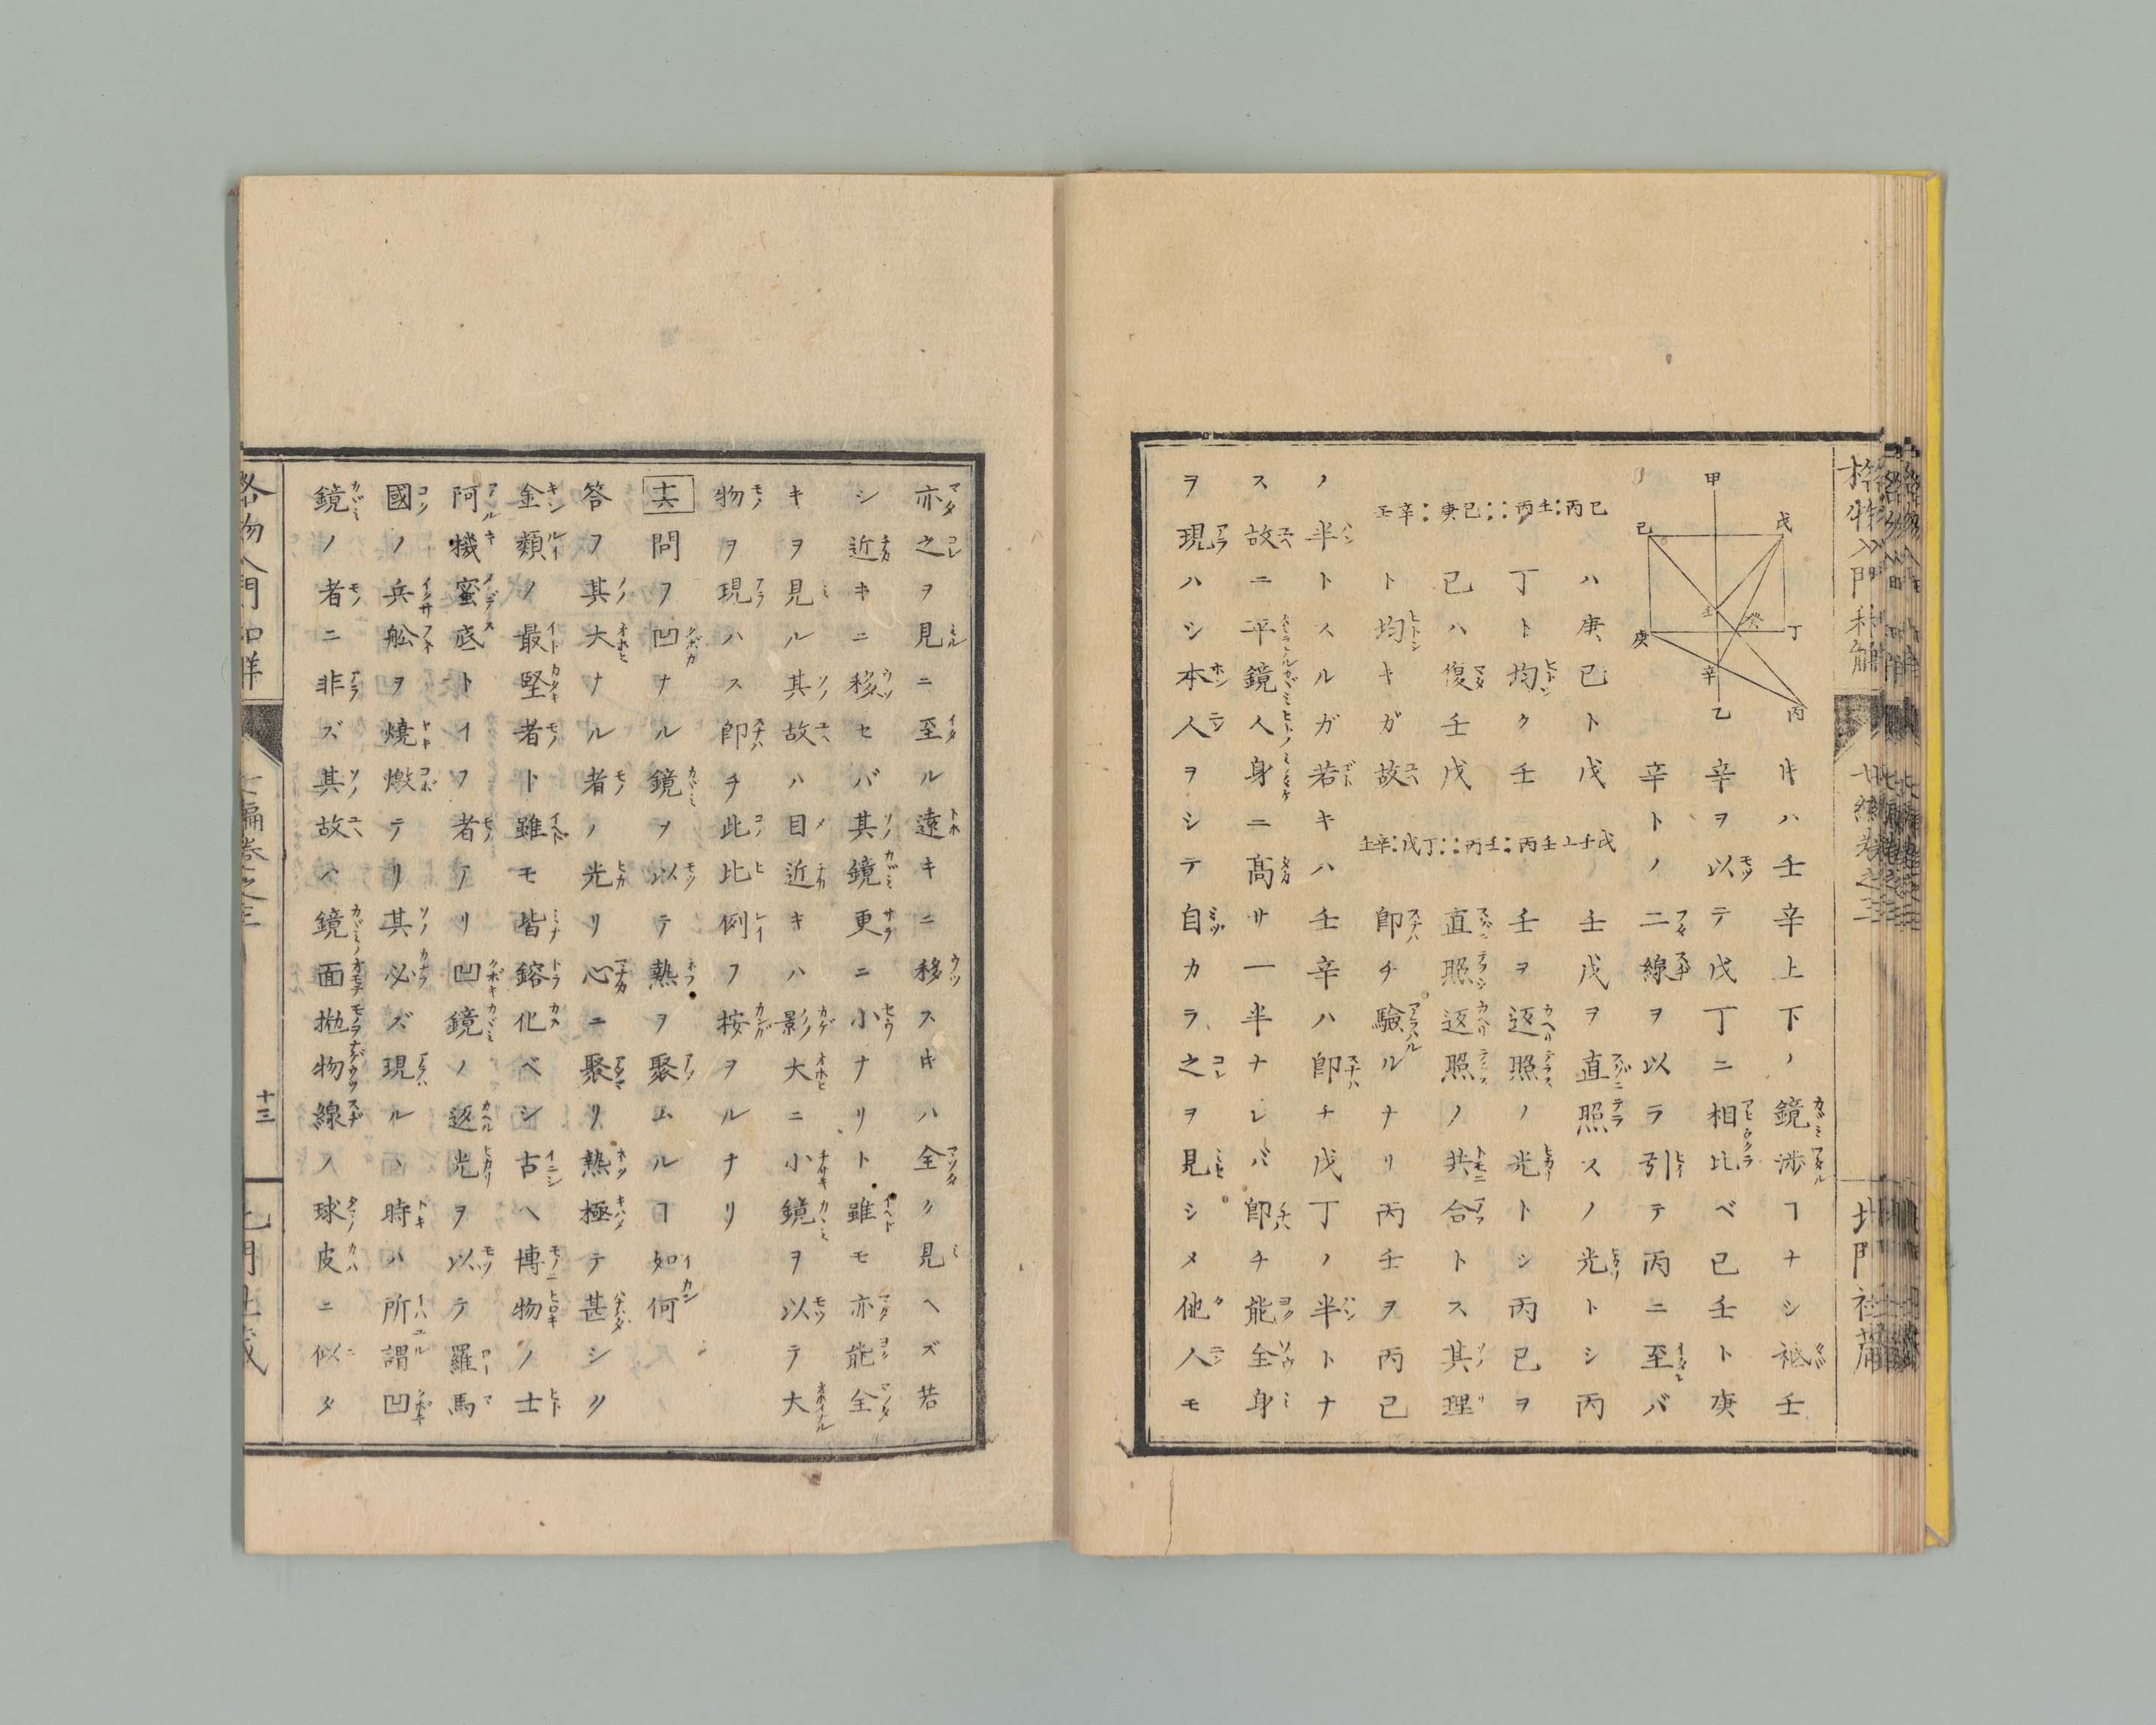 甲
戊
己
壬
癸
丁
庚
辛
乙
丙
壬辛:庚己::丙壬:丙己
キハ壬辛上下ノ鏡渉ヿナシ祗壬
辛ヲ以テ戊丁ニ相比ベ己壬ト庚
辛トノ二線ヲ以ラ引テ丙ニ至バ
ハ庚己ト戊壬戊ヲ直照スノ光トシ丙
丁ト均ク壬壬ヲ返照ノ光トシ丙己ヲ
己ハ復壬戊直照返照ノ共合トス其理
ト均キガ故即チ驗ルナリ丙壬ヲ丙己
ノ半トスルガ若キハ壬辛ハ即チ戊丁ノ半トナ
ス故ニ平鏡人身ニ高サ一半ナレバ即チ能全身
ヲ現ハシ本人ヲシテ自カラ之ヲ見シメ他人モ
亦之ヲ見ニ至ル遠キニ移スキハ全ク見ヘズ若
シ近キニ移セバ其鏡更ニ小ナリト雖モ亦能全
キヲ見ル其故ハ目近キハ影大ニ小鏡ヲ以テ大
物ヲ現ハス即チ此比例フ按ヲルナリ
十六 問フ凹ナル鏡ヲ以テ熱ヲ聚ムルヿ如何
答フ其大ナル者ノ光リ心ニ聚リ熱極テ甚シク
金類ノ最堅者ト雖モ皆鎔化ベシ古ヘ博物ノ士
阿機蜜底トイフ者アリ凹鏡ノ返光ヲ以テ羅馬
國ノ兵舩ヲ燒燬テリ其必ズ現ルヽ時ハ所謂凹
鏡ノ者ニ非ズ其故ハ鏡面拋物線ノ球皮ニ似タ
十三